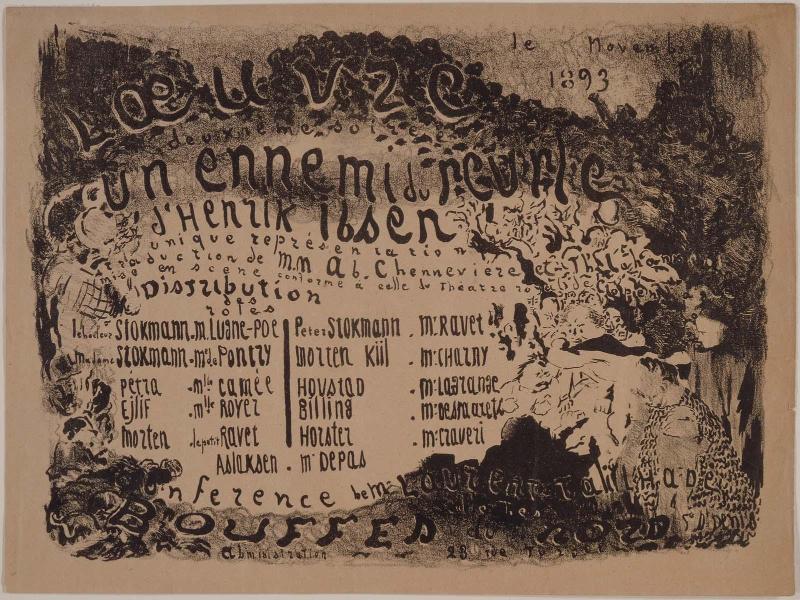 le Novemb
1893
L'œuvre
deuxième soirée
un ennemi du peuple
d'Henrik Ibsen
unique représentation
traduction de M.M Ab. Chenneviere et
mise en scene conforme à celle du Théatre
Distribution
des
roles
le docteur Stokmann . m. Lugne-Poe Peter Stokmann . mr Ravet
Madame Stokmann . mlle Pontry Morten Kiil . mr Charny
Petra . mlle Camée Hovstad . mr Lagrange
Ejlif . mlle Royer Billing
Morten . le petit Ravet Horster . mr Craveri
Aslaksen . mr Depas
conference de Mr Laurent Tailhade
Bouffes du Nord
Administration 23 rue